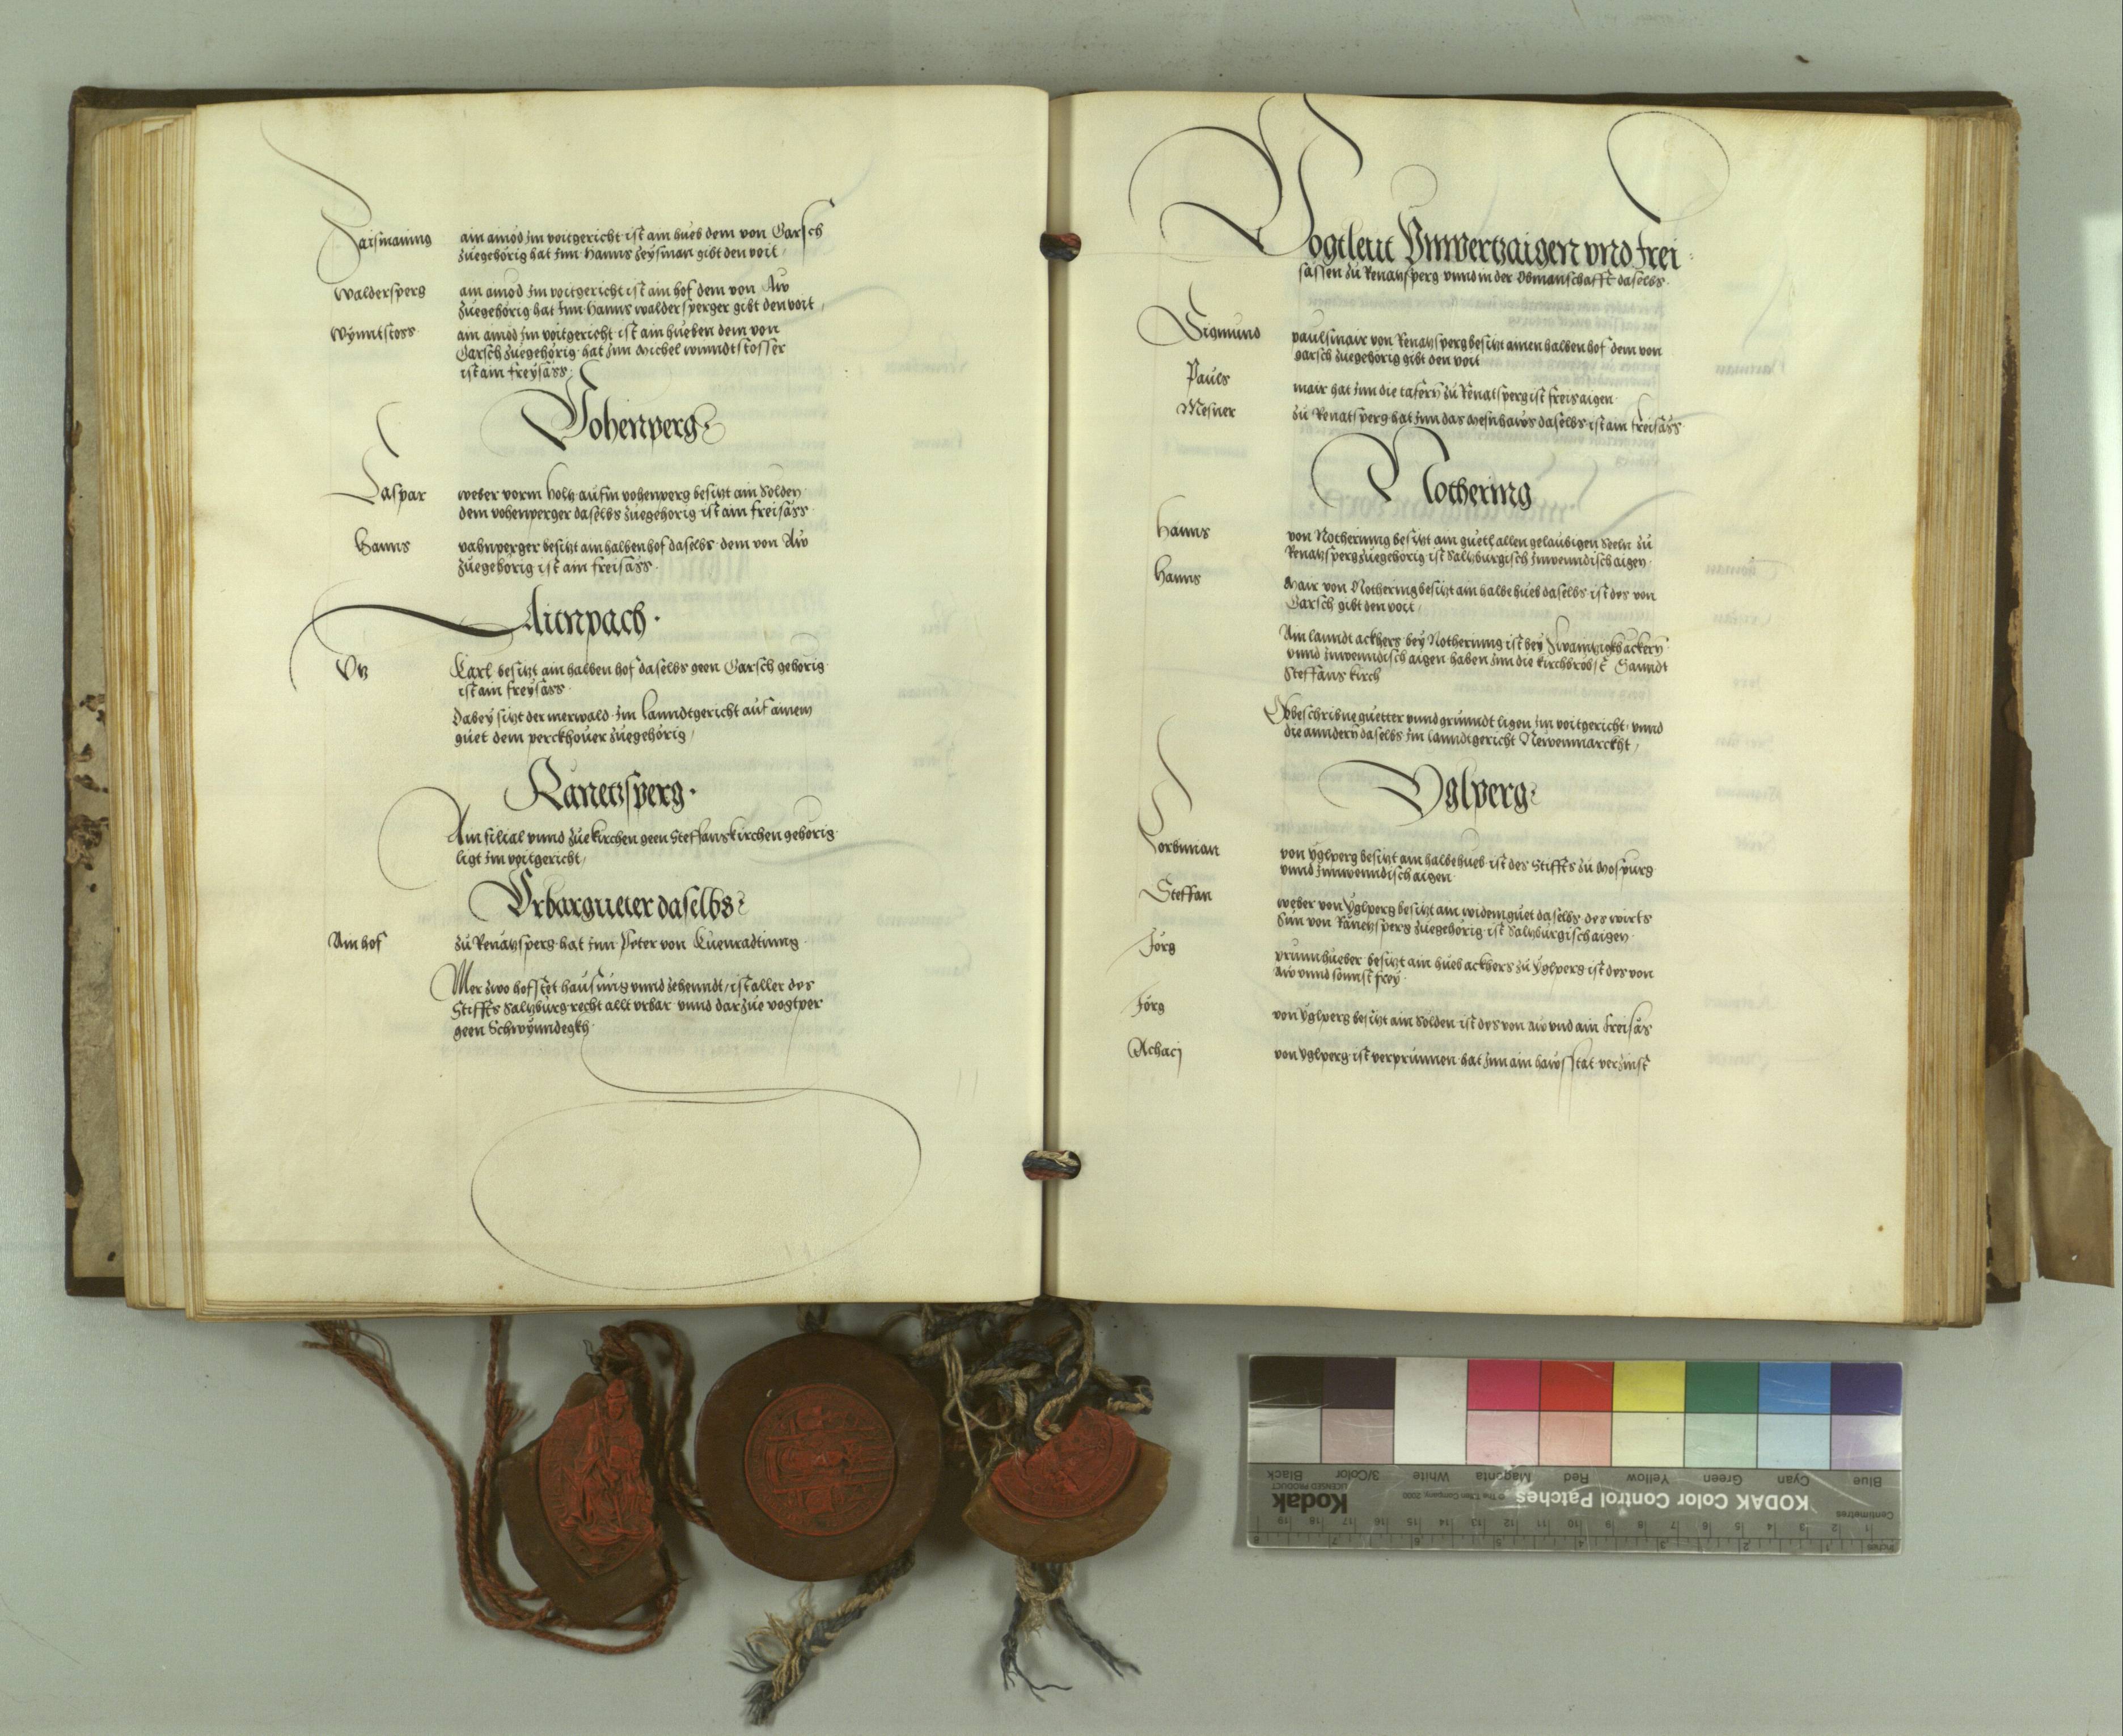 Zaismaning ain ainod im voitgericht ist ain hueb dem von Garsch
zuegehörig hat inn Hanns Zeysman gibt den voit
Waldersperg ain ainod im voitgericht ist ain hof dem von Aw
zuegehörig hat inn Hanns waldersperger gibt den voit
Wynntstoss ain ainod im voitgericht ist ain hueben dem von
Garsch zuegehörig hat inn Michel wundtstosser
ist ain freysäss
Vohenperg
Caspar weber vorm holtz aufm vohenperg besitzt ain Solden
dem vohenperger daselbs zuegehorig ist ain freisäss
Hanns vahnperger besitzt ain halben hof daselbs dem von Aw
zuegehörig ist ain freisäss
Aitnpach
Vtz Karl besitzt ain halben hof daselbs geen Garsch gehörig
ist ain freysäss
Dabey sitzt der merwald im lanndtgericht auf ainem
guet dem perckhover zuegehörig
Ranetzsperg
Ain filial vnnd zuekirchen geen Steffanskirchen gehörig
ligt im voitgericht
Vrbargueter daselbs
Ain hof zu Renatzsperg hat inn Peter von Cuenradtinng
Mer zwo hofstet hausung vnnd zehenndt ist aller des
Stiffts Saltzburg recht allt vrbar vnnd darzue vogtper
geen Schwynndegkh
Vogtleut Innwertzaigen vnd frei
sassen zu Renatzsperg vnnd in der Obmanschafft daselbs
Sigmund paulsmair von Renatzsperg besitzt ainen halben hof dem von
garsch zuegehörig gibt den voit
Pauls mair hat inn die tafern zu Renatsperg ist freisaigen
Mesner zu Renatsperg hat inn das Mesnhaws daselbs ist ain freisäss
Nothering
Hanns von Notherinng besitzt ain guetl allen gelaubigen Seeln zu
Renatzsperg zuegehörig ist Saltzburgisch innwenndisch aigen
Hanns Mair von Nothering besitzt ain halbe hueb daselbs ist des von
Garsch gibt den voit
Ain lanndt ackhers bey Notherinng ist bey Zwaintzigkh äckern
vnnd innwenndisch aigen haben inn die kirchbröbst Sanndt
Steffans kirch
Obbeschribne guetter vnnd grunndt ligen im voitgericht vnnd
die anndern daselbs im lanndtgericht Newenmarckht
Yglperg
von Yglperg besitzt ain halbe hueb ist des Stiffts zu Mospurg
vnnd innwenndisch aigen
Steffan weber von Yglperg besitzt ain widemguet daselbs des wirts
Sun von Ranetzsperg zuegehörig ist Saltzburgisch aigen
Jörg prunnhueber besitzt ain hueb ackhers zu Yglperg ist des von
aw vnnd sunnst frey
Jörg von Yglperg besitzt ain Solden ist des von aw vnd ain freisäs
Achacj von Yglperg ist verprunnen hat inn ain hawsstat verzinst
KODAK Color Control Patches
Kodak
LICENSED PRODUCT
© The Tiffen Company, 2000
Blue Cyan Green Yellow Red Magenta White 3/Color Black
Centimetres
1 2 3 4 5 6 7 8 9 10 11 12 13 14 15 16 17 18 19
Inches
1 2 3 4 5 6 7 8